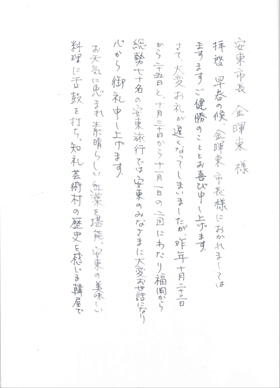 安東市長 金暉東 様
拝啓 早春の候 金暉東市長様におかれましては
ますますご健勝のこととお喜び申し上げます。
さて大変お礼が遅くなってしまいましたが、昨年十月二十三日
から二十五日と、十月三十日から十一月一日の二回にわたり福岡から
総勢七十名の安東旅行では、安東のみなさまに大変お世話になり
心から御礼申し上げます。
お天気に恵まれ素晴らしい紅葉を堪能、安東の美味しい
料理に舌鼓を打ち、知礼芸術村の歴史を感じる韓屋で